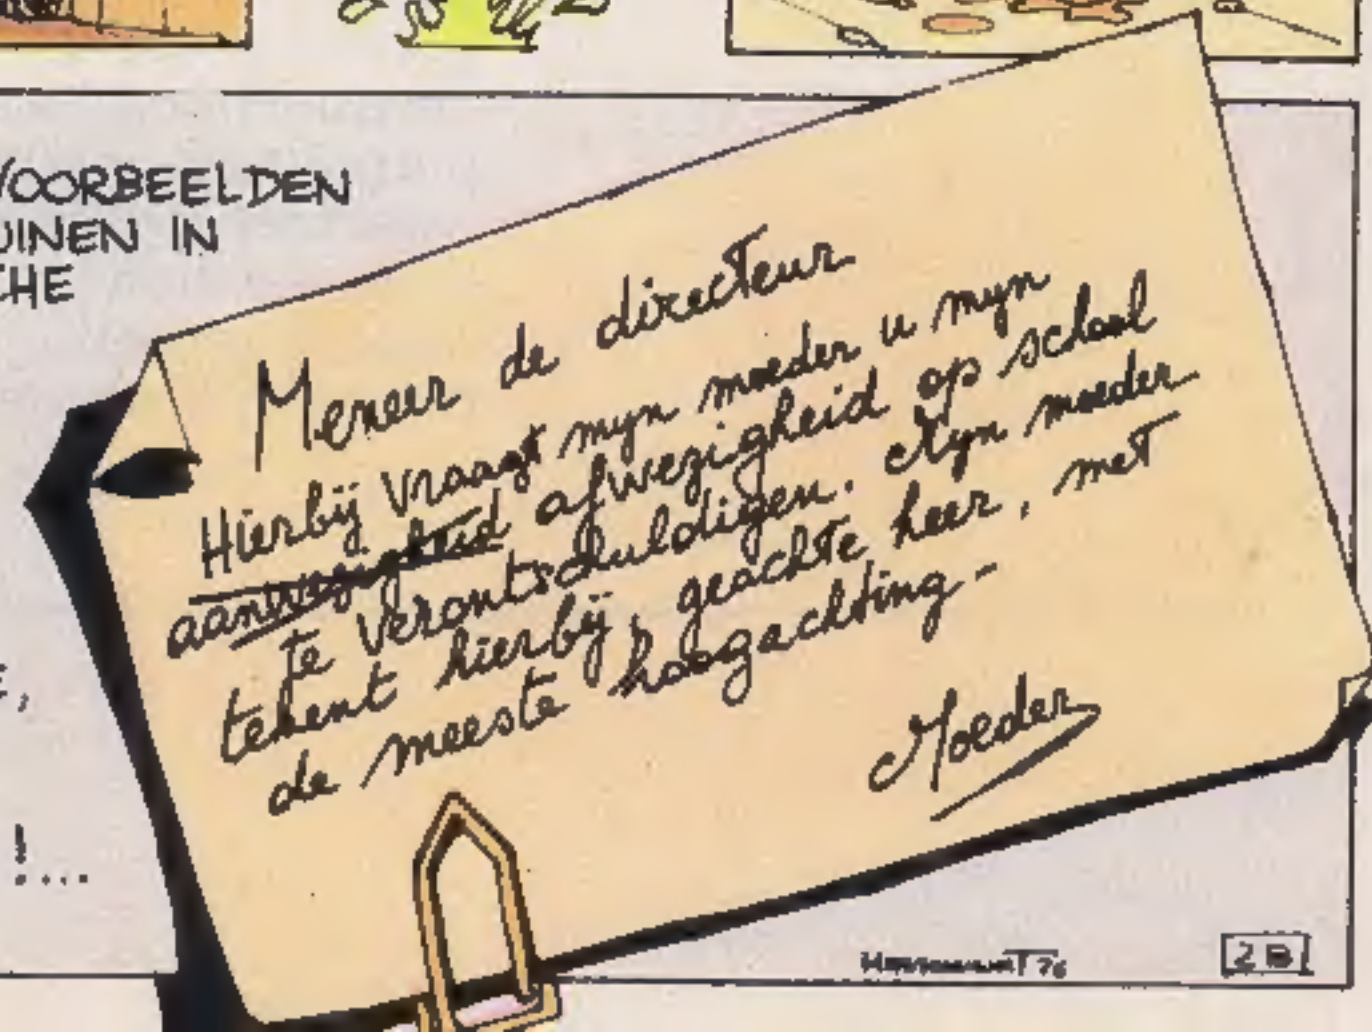 VOORBEELDEN
UINEN IN
CHE
E,
!...
Meneer de directeur
Hierbij vraagt mijn moeder u mijn
aanwezigheid afwezigheid op school
te verontschuldigen. Mijn moeder
tekent hierbij, geachte heer, met
de meeste hoogachting-
Moeder
76
2B